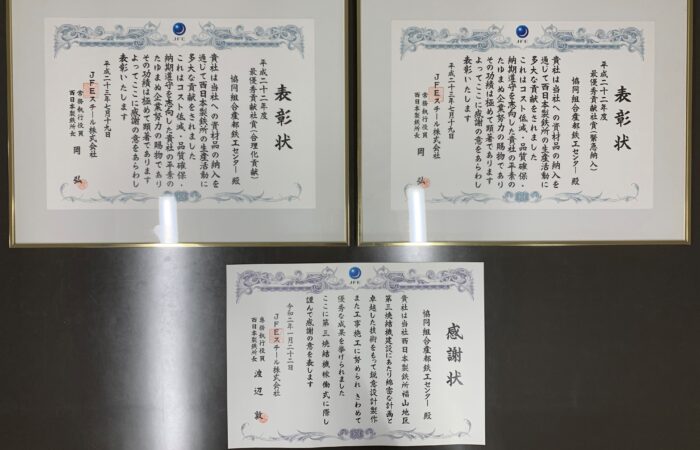 JFE
表彰状
平成二十二年度
最優秀貢献社賞(緊急納入)
協同組合産都鉄工センター 殿
貴社は当社への資材品の納入を
通じて西日本製鉄所の生産活動に
多大な貢献をされました
これはコスト低減・品質確保・
納期遵守を志向した貴社の平素の
たゆまぬ企業努力の賜物であり
その功績は極めて顕著であります
よってここに感謝の意をあらわし
表彰いたします
平成二十三年七月十九日
JFEスチール株式会社
常務執行役員
西日本製鉄所長 岡 弘
JFE
表彰状
平成二十二年度
最優秀貢献社賞(合理化貢献)
協同組合産都鉄工センター 殿
貴社は当社への資材品の納入を
通じて西日本製鉄所の生産活動に
多大な貢献をされました
これはコスト低減・品質確保・
納期遵守を志向した貴社の平素の
たゆまぬ企業努力の賜物であり
その功績は極めて顕著であります
よってここに感謝の意をあらわし
表彰いたします
平成二十三年七月十九日
JFEスチール株式会社
常務執行役員
西日本製鉄所長 岡 弘
JFE
感謝状
協同組合産都鉄工センター 殿
貴社は当社西日本製鉄所福山地区
第三焼結機建設にあたり綿密な計画と
卓越した技術をもって鋭意設計製作
また工事施工に努められ きわめて
優秀な成果を挙げられました
ここに第三焼結機稼働式に際し
謹んで感謝の意を表します
令和二年一月二十二日
JFEスチール株式会社
専務執行役員
西日本製鉄所長 渡辺 敦